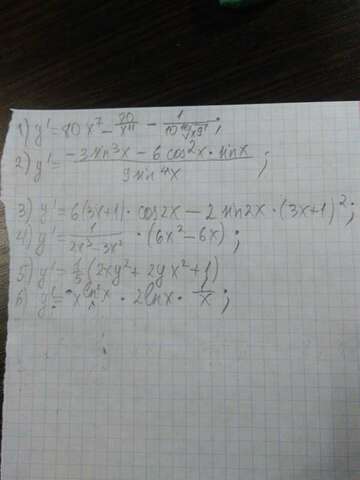 1) y' = 80x^7 - 20/x^11 - 1/(10 ¹⁰√x^9);
2) y' = (-3sin^3x - 6cos^2x · sinx)/(9sin^4x);
3) y' = 6(3x+1) · cos2x - 2sin2x · (3x+1)^2;
4) y' = 1/(2x^3-3x^2) · (6x^2-6x);
5) y' = 1/5(2xy^2 + 2yx^2 + 1)
6) y' = x^(ln^2x) · 2lnx · 1/x;